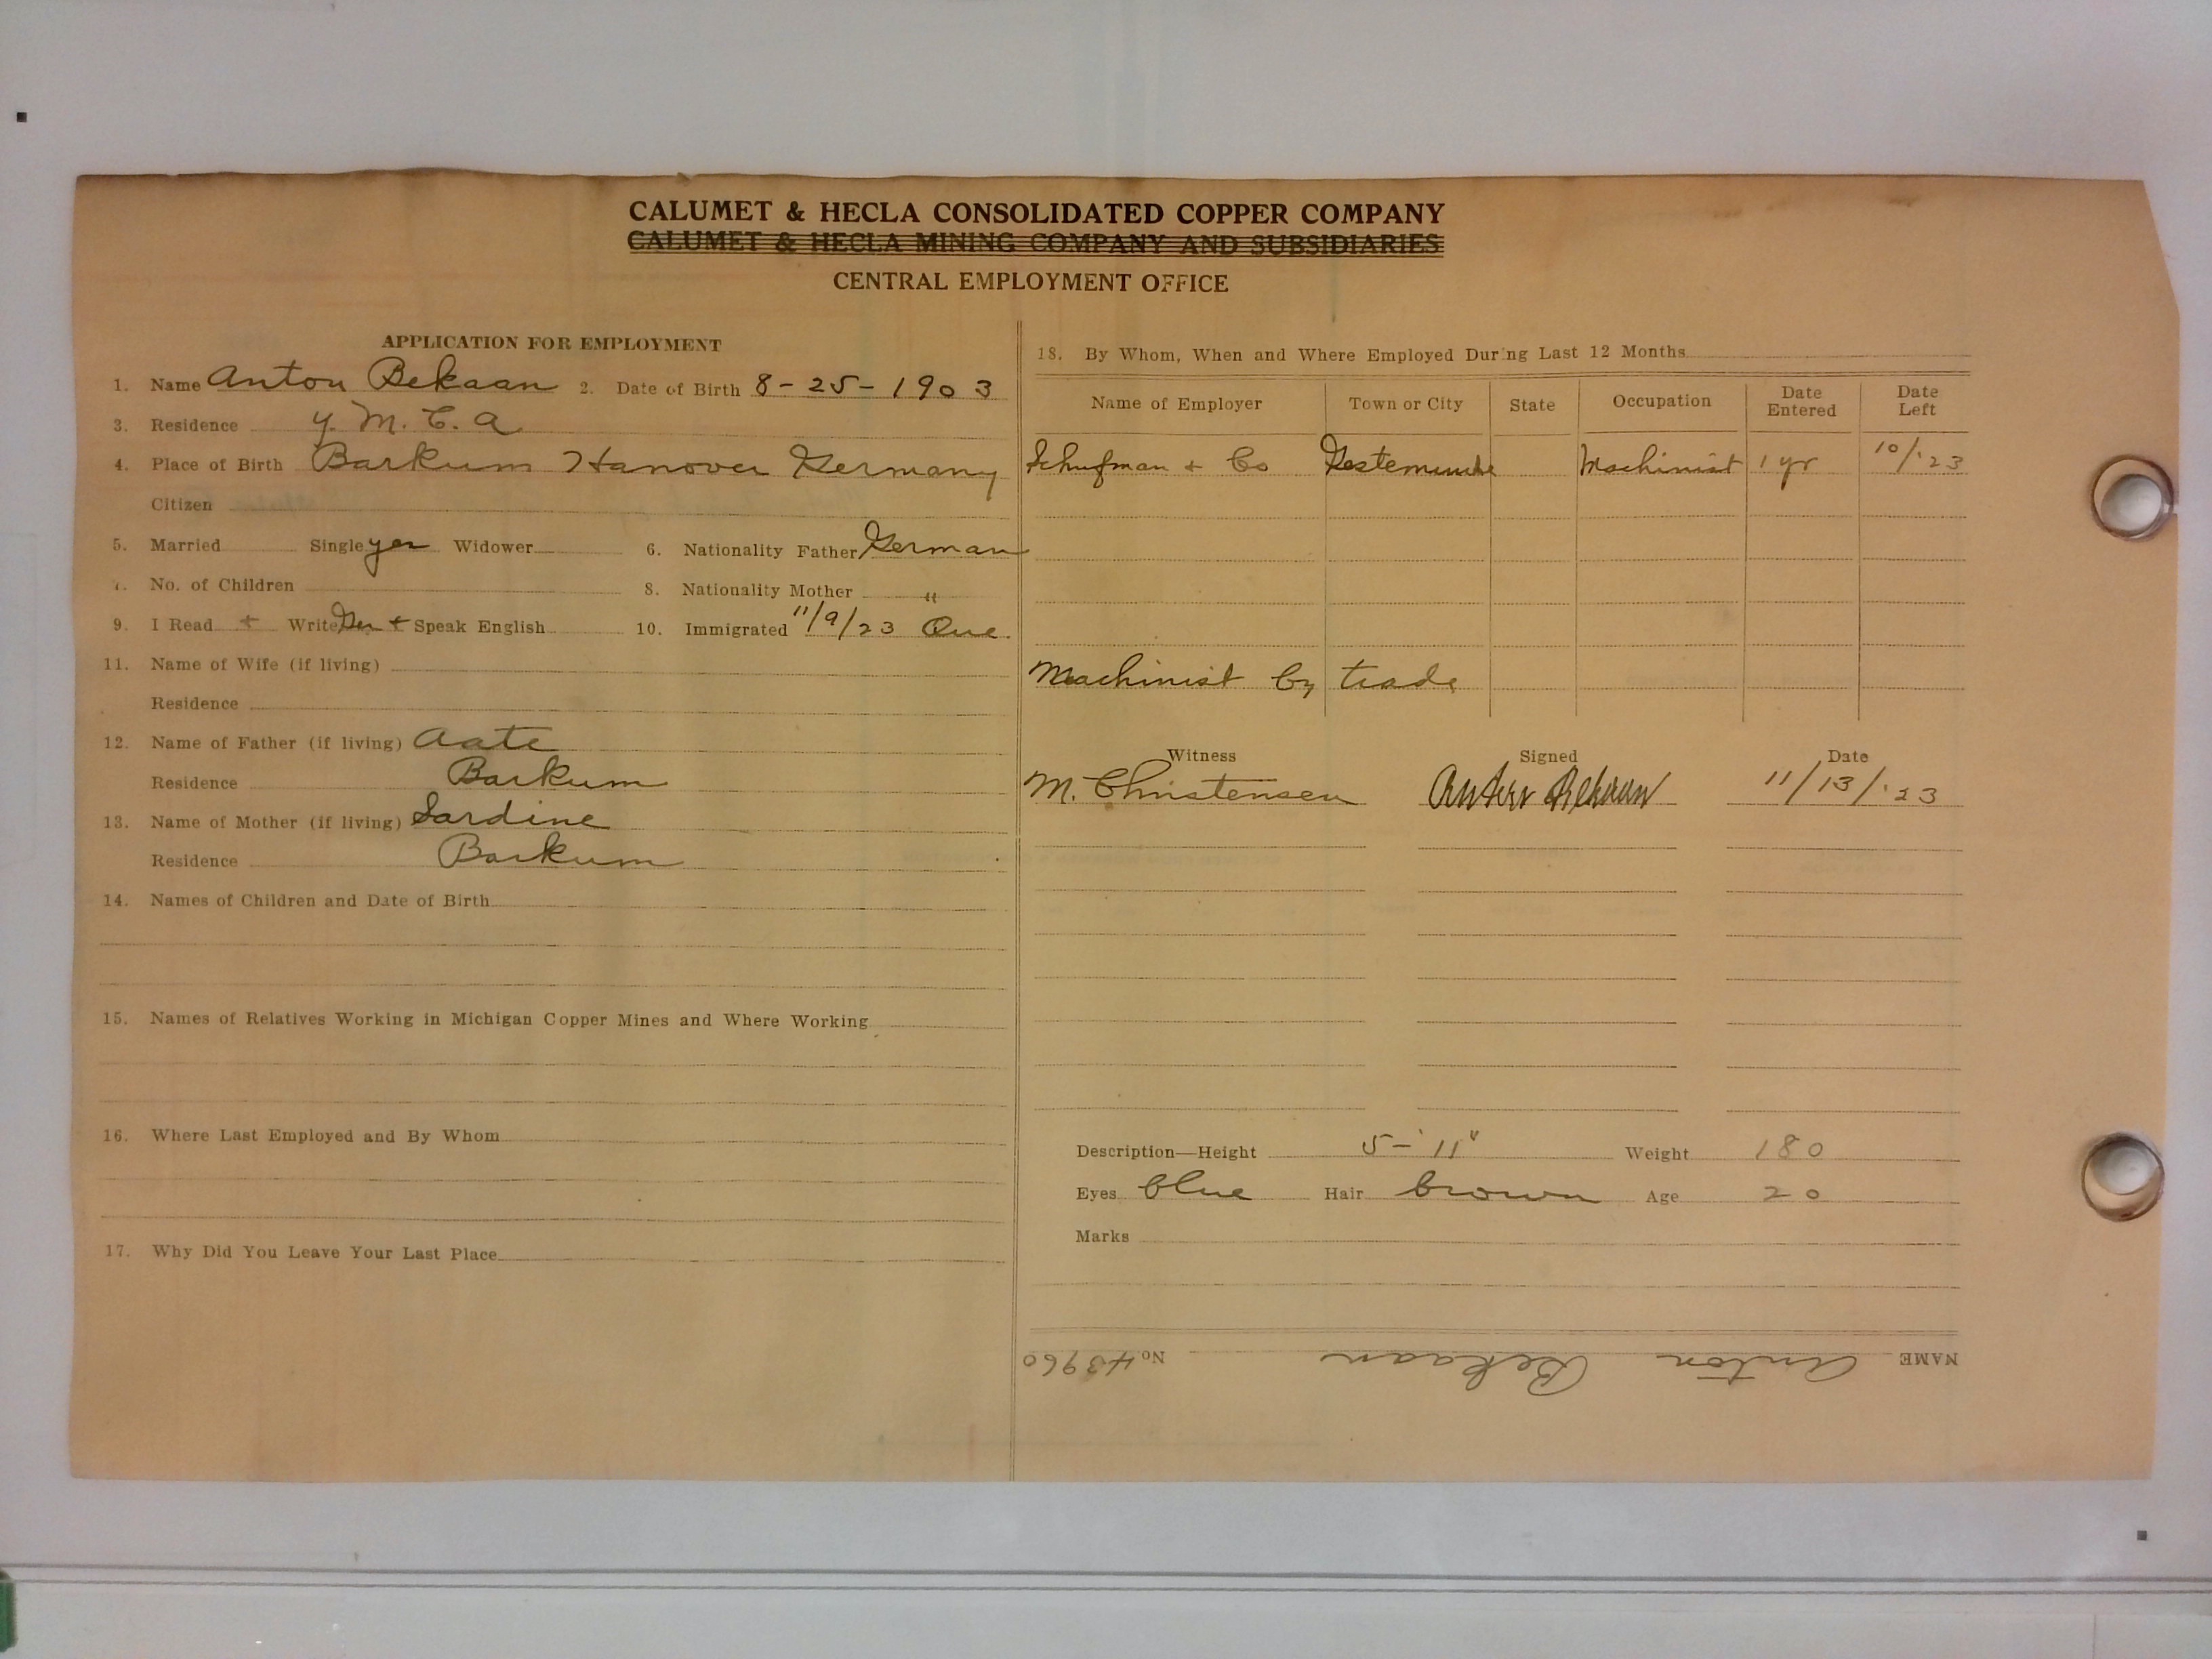 CALUMET & HECLA CONSOLIDATED COPPER COMPANY
CALUMET & HECLA MINING COMPANY AND SUBSIDIARIES
CENTRAL EMPLOYMENT OFFICE
APPLICATION FOR EMPLOYMENT
1. Name Anton Bekaan 2. Date of Birth 8-25-1903
3. Residence Y. M. C. A
4. Place of Birth Barkum Hanover Germany
Citizen
5. Married Single yes Widower 6. Nationality Father German
7. No. of Children 8. Nationality Mother "
9. I Read + Write Ger + Speak English 10. Immigrated 11/9/23 Que.
11. Name of Wife (if living)
Residence
12. Name of Father (if living) Aate
Residence Barkum
13. Name of Mother (if living) Sardine
Residence Barkum
14. Names of Children and Date of Birth
15. Names of Relatives Working in Michigan Copper Mines and Where Working
16. Where Last Employed and By Whom
17. Why Did You Leave Your Last Place
18. By Whom, When and Where Employed During Last 12 Months
Name of Employer Town or City State Occupation Date Entered Date Left
Schufman + Co Gestemunde Machinist 1 yr 10/'23
Machinist by trade
Witness Signed Date
M. Christensen Anton Bekaan 11/13/'23
Description—Height 5-'11" Weight 180
Eyes blue Hair brown Age 20
Marks
NAME Anton Bekaan No 43960